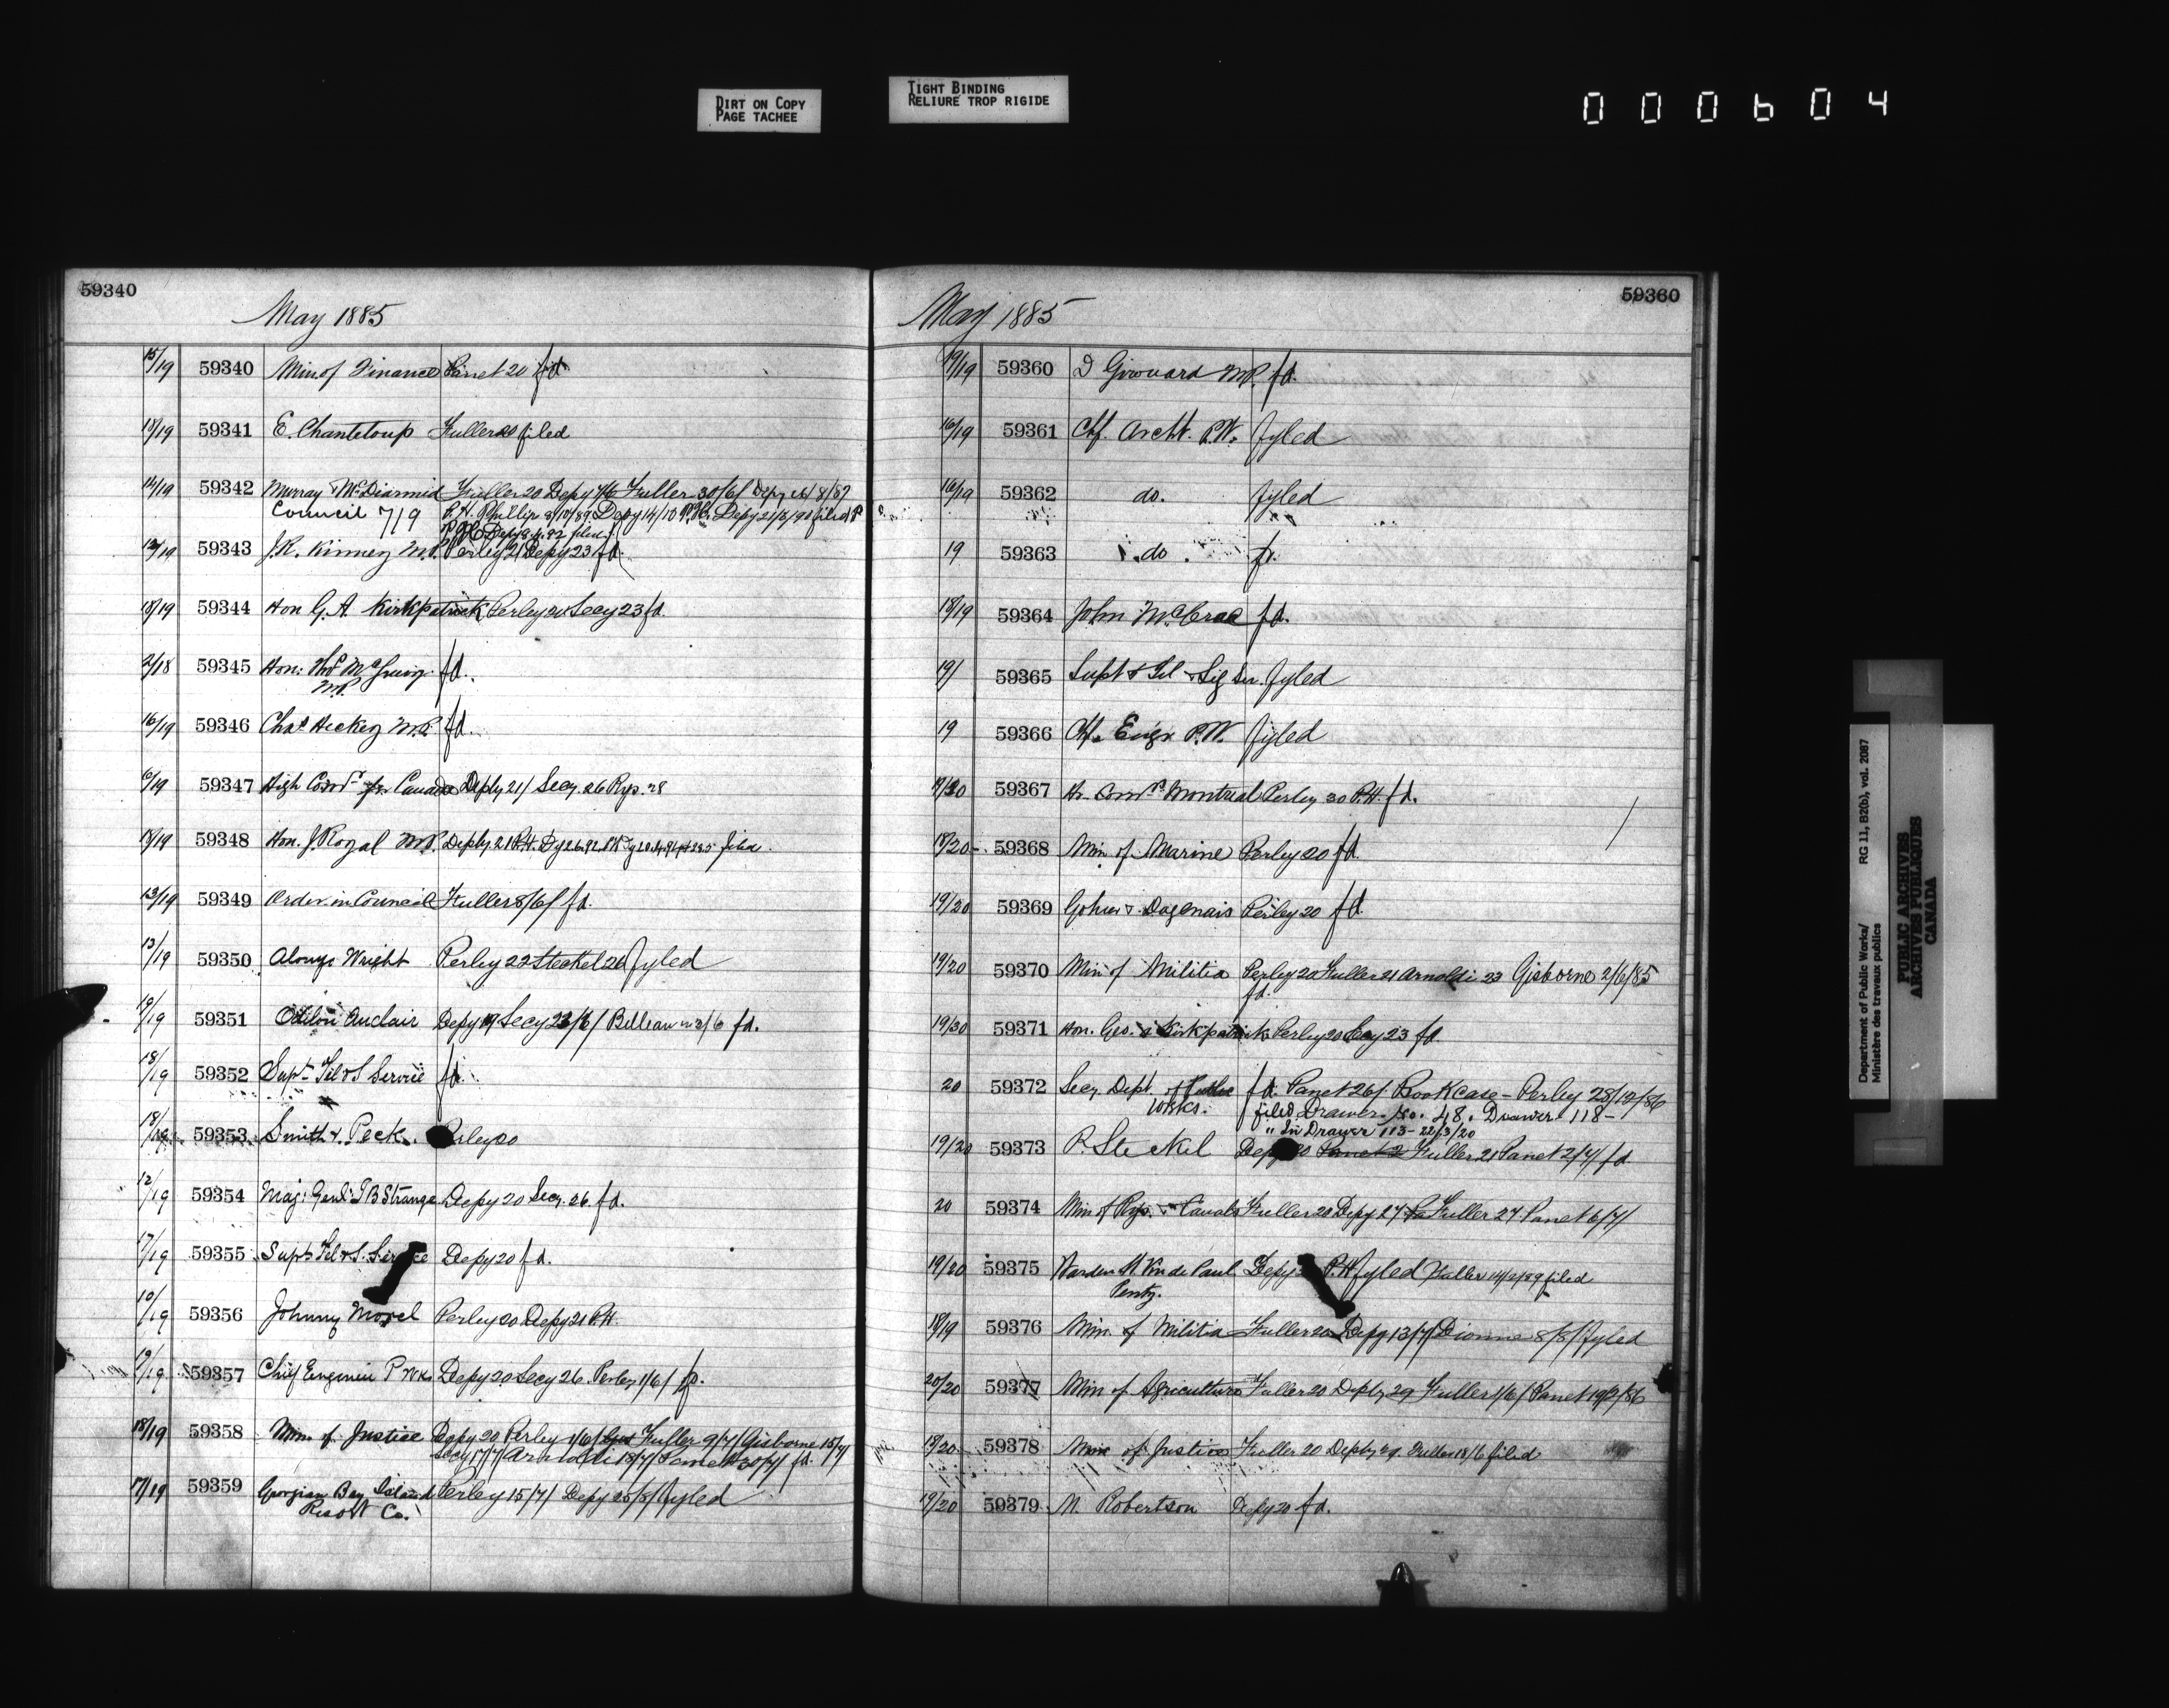 DIRT ON COPY
PAGE TACHEE
TIGHT BINDING
RELIURE TROP RIGIDE
000604
59340
May 1885
15/19 59340 Min. of Finance Panet 20 fd
18/19 59341 E. Chanteloup Fuller 20 filed
14/19 59342 Murray & McDiarmid Fuller 20 Depy 4/6 Fuller 30/6/ Depy 16/8/87
Council 7/9 P.H. Phillip 9/10/89 Depy 14/10 P.H. Depy 21/3/90 filed
P.H. Depy 92 filed
12/19 59343 J.R. Kinney M.P. Perley 21 Depy 23 fd.
18/19 59344 Hon G.A Kirkpatrick Perley 20 Secy 23 fd.
2/18 59345 Hon: Thos McGreevy fd.
M.P.
16/19 59346 Chas Hickey M.P. fd.
6/19 59347 High Comr for Canada Deply 21/ Secy. 26 Rys. 28
18/19 59348 Hon. J. Royal M.P. Deply 21 P.H. filed
13/19 59349 Order in Council Fuller 8/6/ fd.
13/19 59350 Alonzo Wright Perley 22 Steckel 26 fyled
19/19 59351 Odilon Auclair Depy 19 Secy 23/6/ Belleau 3/6 fd.
18/19 59352 Supt. Tel & S Service fd.
18/19 59353 Smith & Peck. Perley 20
12/19 59354 Maj: Genl: T B Strange Depy 20 Secy. 26. fd.
17/19 59355 Supt Tel & S. Service Depy 20 fd.
10/19 59356 Johnny Morel Perley 20 Depy 21 P.H.
19/19 59357 Chief Engineer P Wks Depy 20 Secy 26. Perley 1/6/ fd.
18/19 59358 Min. of Justice Depy 20 Perley 1/6/ Fuller 9/7/ Gisborne 15/7/
Secy 17/7/ Arnoldi 18/7/ Panet 30/7/ fd.
17/19 59359 Georgian Bay Island Perley 15/7/ Depy 25/8/ fyled
Resort Co.
59360
May 1885
19/19 59360 D Girouard M.P. fd.
16/19 59361 Chf. Archt. P.W. fyled
16/19 59362 do. fyled
19 59363 do. fd.
18/19 59364 John McCrae fd.
19/ 59365 Supt & Tel & Sig Ser. fyled
19 59366 Chf. Engr P.W. fyled
59367 Hr. Comrs Montreal Perley 30 P.H. fd.
18/20 59368 Min of Marine Perley 20 fd.
19/20 59369 Gohier & Dagenais Perley 20 fd.
19/20 59370 Min of Militia Perley 20 Fuller 21 Arnoldi 23 Gisborne 2/6/85
fd.
19/20 59371 Hon. Geo. Kirkpatrick Perley 20 Secy 23 fd.
20 59372 Secy Dept. of Public fd. Panet 26/ Book case - Perley 28/12/86
Works. filed Drawer No. 48. Drawer 118-
" In Drawer 113 - 22/3/20
19/20 59373 R. Steckel Depy 20 Panet 2 Fuller 21 Panet 2/7/ fd
20 59374 Min of Rys. & Canals Fuller 20 Depy 27 Fuller 27 Panet 6/7/
19/20 59375 Warden St. Vin de Paul Depy P.H. fyled Fuller 14/2/89 filed
Penty.
18/19 59376 Min. of Militia Fuller 20 Depy 13/7/ Dionne 8/8/ fyled
20/20 59377 Min of Agriculture Fuller 20 Deply 29 Fuller 1/6/ Panet 19/2/86
18/20 59378 Min of Justice Fuller 20 Deply 29. Fuller 18/6 filed
19/20 59379 Robertson Depy 20 fd.
Department of Public Works/ RG 11, B2(b), vol. 2087
Ministère des travaux publics
PUBLIC ARCHIVES
ARCHIVES PUBLIQUES
CANADA